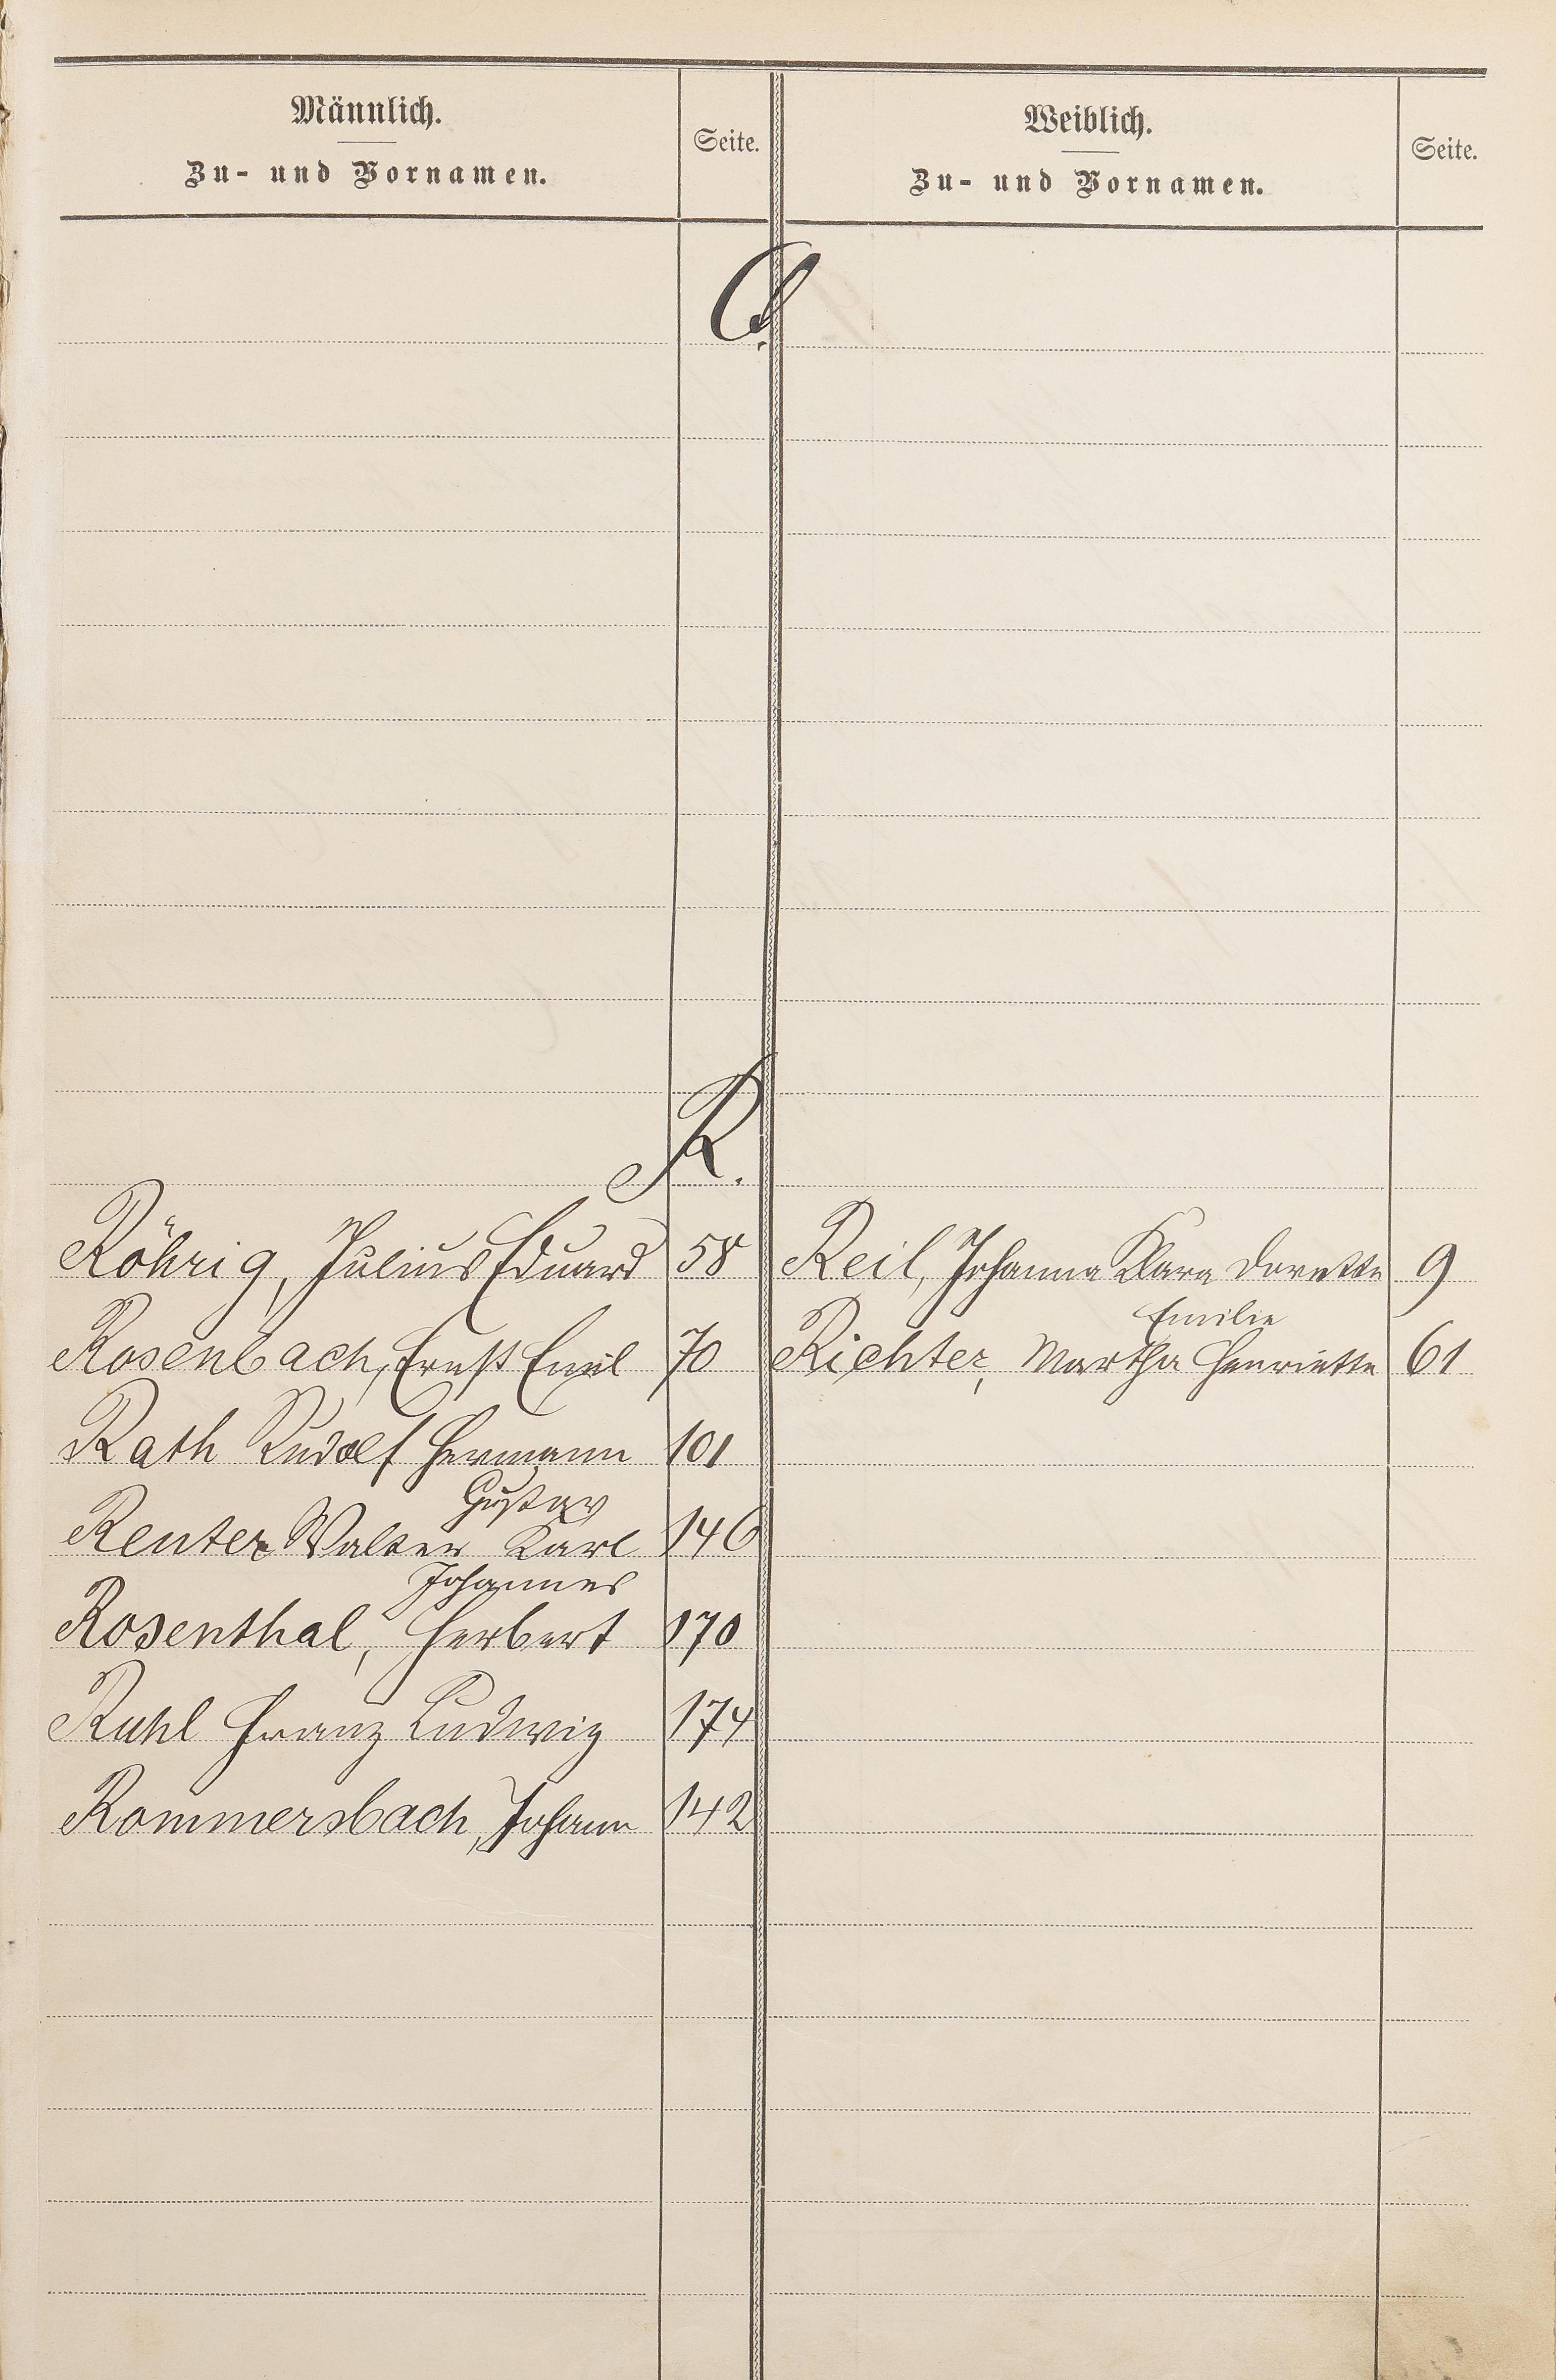 Männlich.
Zu- und Vornamen.
Seite.
Weiblich.
Zu- und Vornamen.
Seite.
Q.
R.
Röhrig, Julius Eduard 58
Reil, Johanna Klara Dorette 9
Rosenbach, Ernst Emil 70
Emilie
Richter, Martha Henriette 61
Rath Rudolf Hermann 101
Gustav
Renter Walter Karl 146
Johannes
Rosenthal, Herbert 170
Ruhl Franz Ludwig 174
Rommersbach, Johann 142